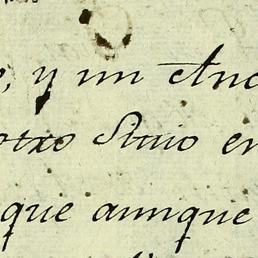 , y un Anc
otro Sitio en
que aunque